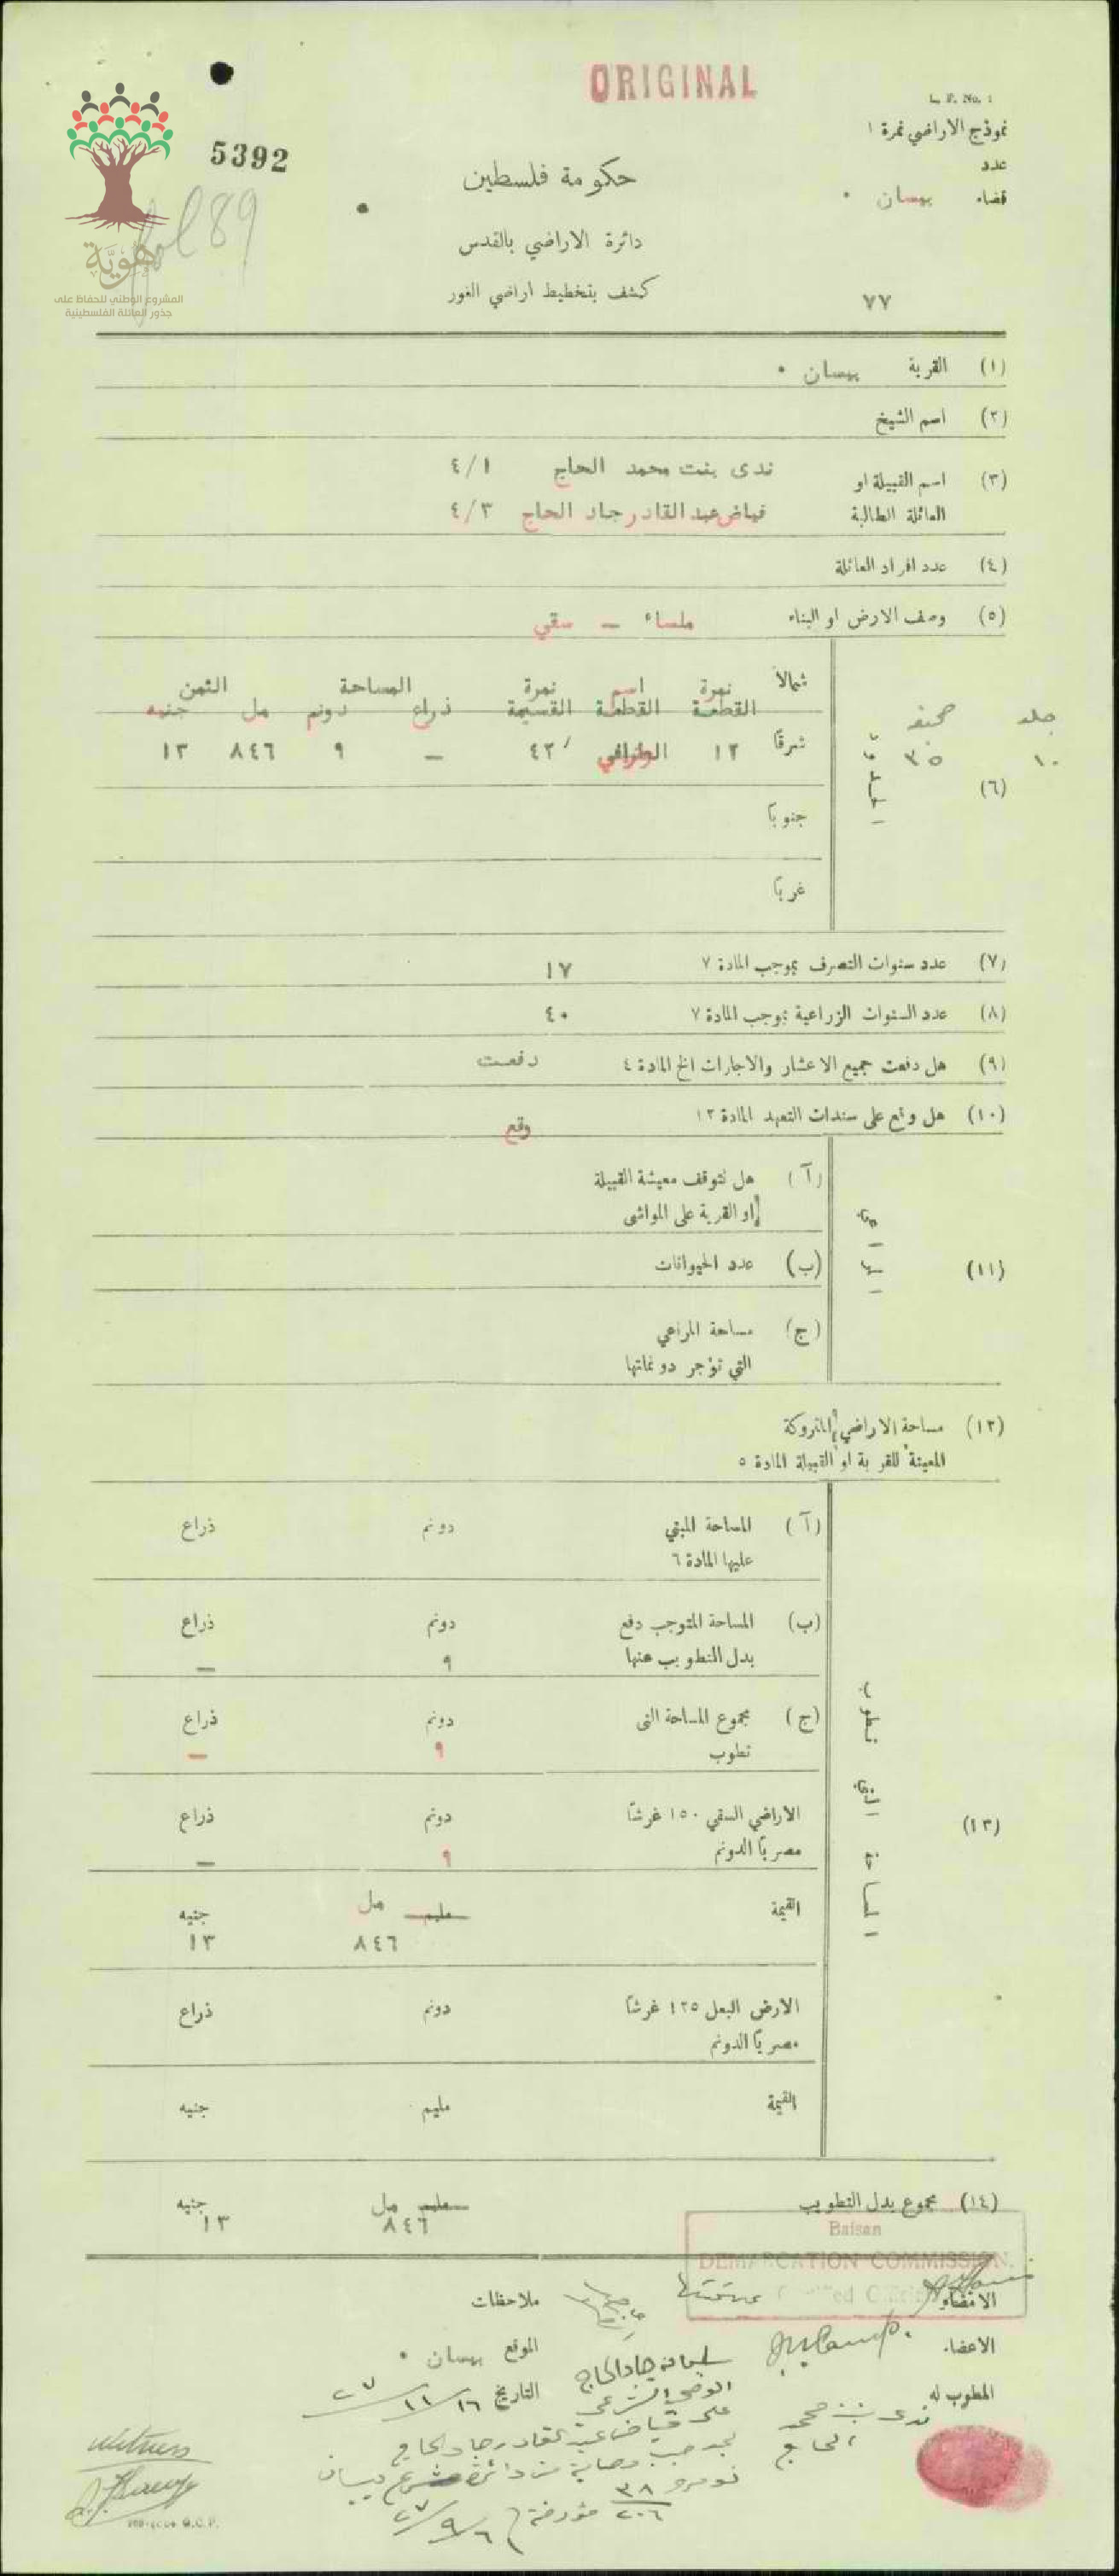 ORIGINAL
L. F. No. 1
نموذج الاراضي نمرة ١
5392
عدد
حكومة فلسطين
قضاء بيسان .
89
دائرة الاراضي بالقدس
هوية
كشف بتخطيط اراضي الغور
٧٧
المشروع الوطني للحفاظ على
جذور العائلة الفلسطينية
(١) القرية بيسان .
(٢) اسم الشيخ
(٣) اسم القبيلة او
العائلة الطالبة
ندى بنت محمد الحاج ٤/١
فياض عبد القادر جاد الحاج ٤/٣
(٤) عدد افراد العائلة
(٥) وصف الارض او البناء ملساء — سقي
جلد صحيفة
١٠ ٣٥
(٦) الحدود
شمالاً نمرة القطعة اسم القطعة نمرة القسيمة المساحة ذراع دونم الثمن مل جنيه
شرقاً ١٢ ٤٢ — ٩ ٨٤٦ ١٣
جنوباً
غرباً
(٧) عدد سنوات التصرف بموجب المادة ٧ ١٧
(٨) عدد السنوات الزراعية بموجب المادة ٧ ٤٠
(٩) هل دفعت جميع الاعشار والاجارات الخ المادة ٤ دفعت
(١٠) هل وقع على سندات التعهد المادة ١٢ وقع
(١١)
(آ) هل تتوقف معيشة القبيلة
او القرية على المواشي
(ب) عدد الحيوانات
(ج) مساحة المراعي
التي تؤجر دونماتها
(١٢) مساحة الاراضي المتروكة
المعينة للقرية او القبيلة المادة ٥
(١٣) المساحة التي تطوب
(آ) المساحة المبني دونم ذراع
عليها المادة ٦
(ب) المساحة المتوجب دفع دونم ذراع
بدل التطويب عنها ٩ —
(ج) مجموع المساحة التي دونم ذراع
تطوب ٩ —
الاراضي السقي ١٥٠ غرشاً دونم ذراع
مصرياً الدونم ٩ —
القيمة مليم مل جنيه
٨٤٦ ١٣
الارض البعل ١٢٥ غرشاً دونم ذراع
مصرياً الدونم
القيمة مليم جنيه
(١٤) مجموع بدل التطويب مليم مل جنيه
٨٤٦ ١٣
Baisan
DEMARCATION COMMISSION.
الامضاء
ملاحظات
الاعضاء
الموقع بيسان .
سليمان جاد الحاج
المطوب له
التاريخ ١٦/١١/٢٧
الوصي الشرعي
ندى بنت محمد
الحاج
على فياض عبد القادر جاد الحاج
بموجب وصاية من دائرة شرع بيسان
نومرو ٣٨
٢٠٦
مؤرخة ٦/٩/٢٧
Witness